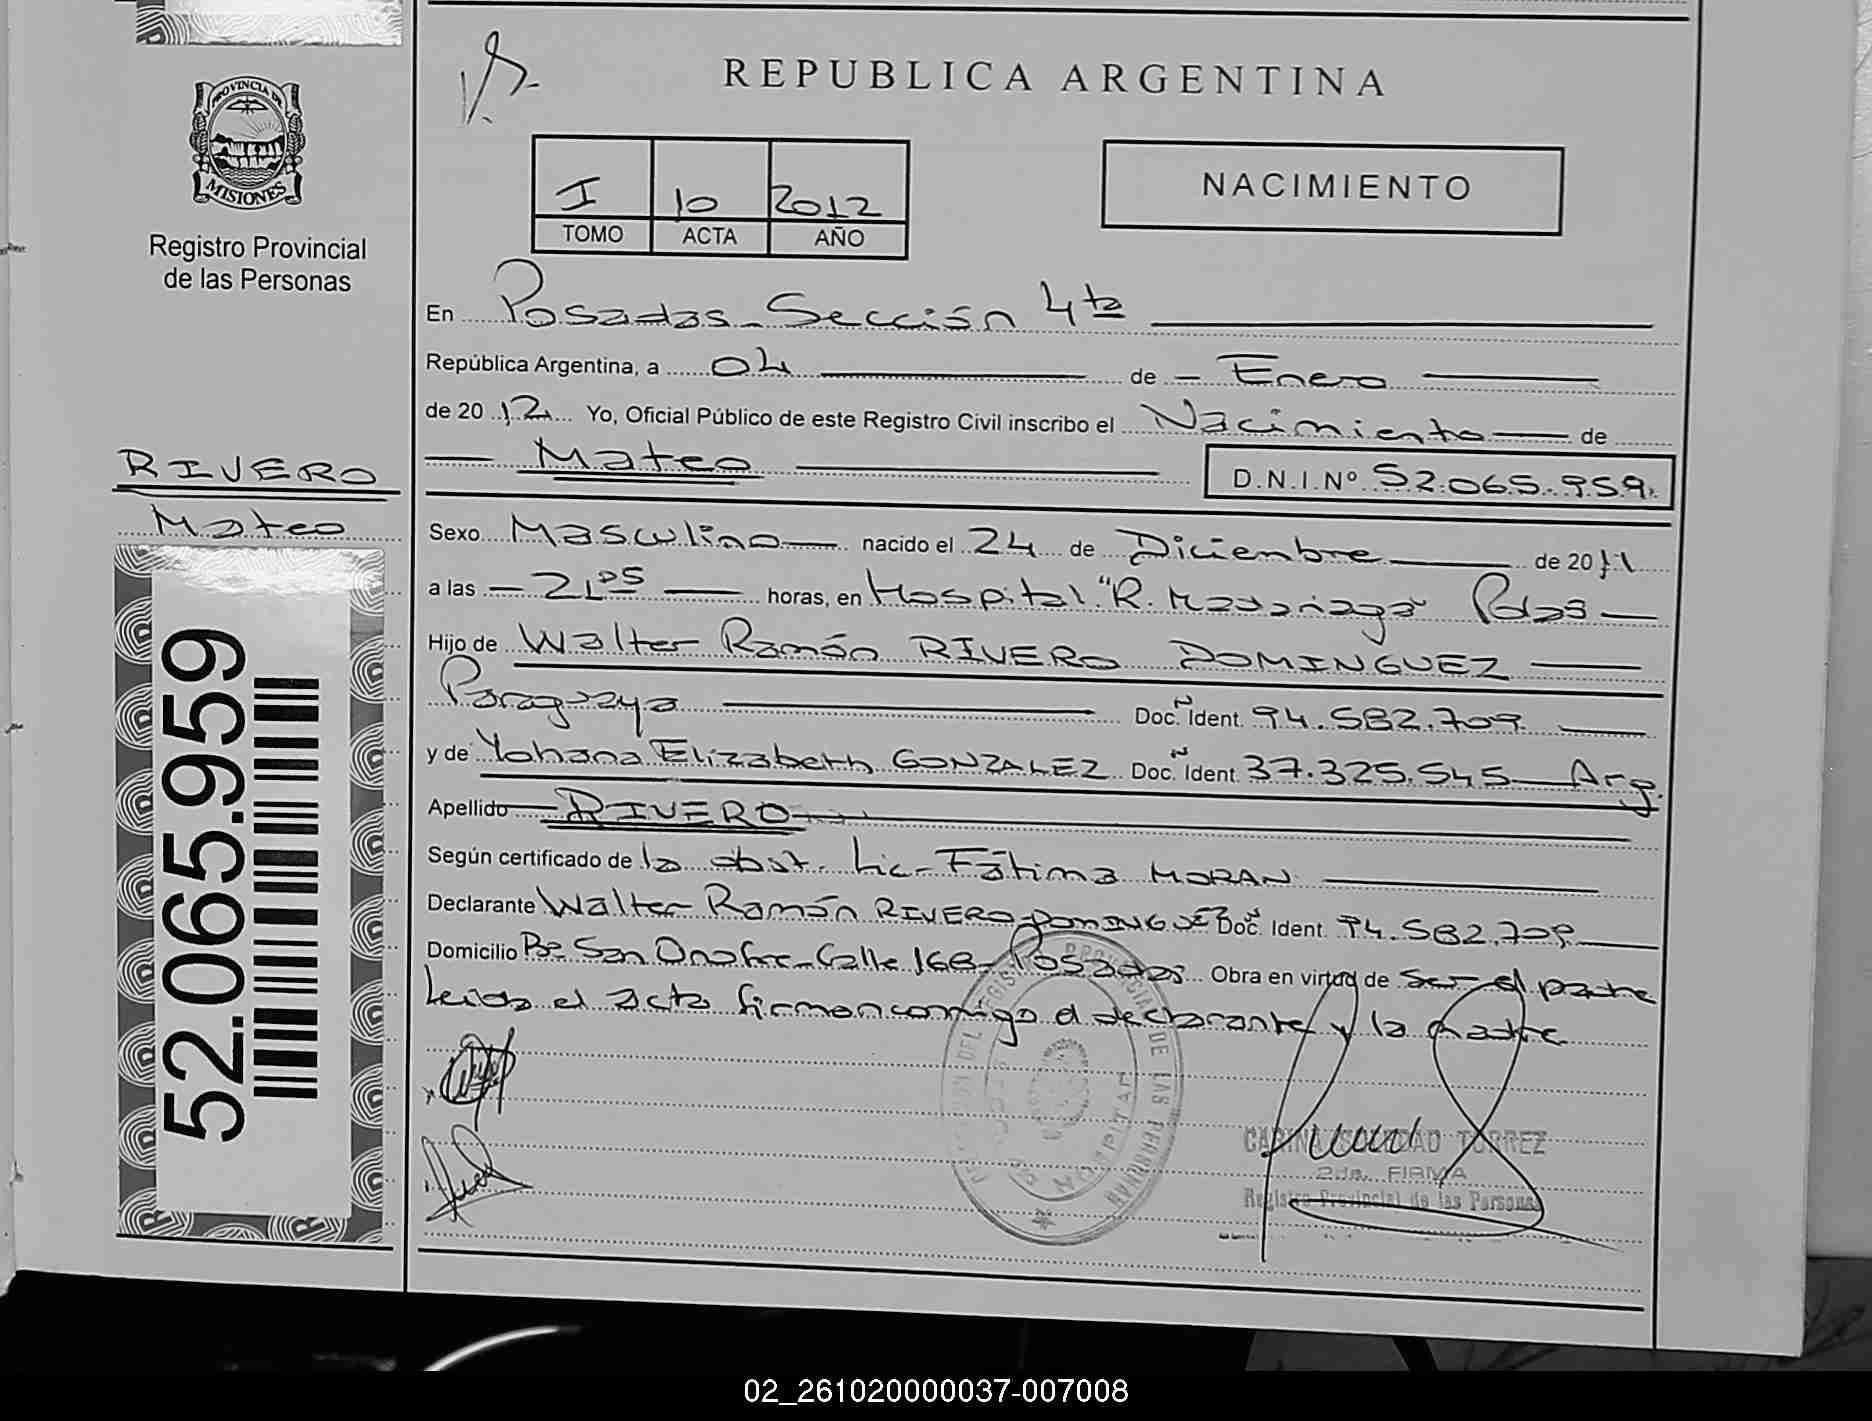 REPUBLICA ARGENTINA
PROVINCIA DE
MISIONES
Registro Provincial
de las Personas
I 10 2012
TOMO ACTA AÑO
NACIMIENTO
En Posadas - Sección 4ta
República Argentina, a 04 de Enero
de 2012 Yo, Oficial Público de este Registro Civil inscribo el Nacimiento de
Mateo D.N.I.Nº 52.065.959.
RIVERO
Mateo
52.065.959
Sexo Masculino nacido el 24 de Diciembre de 2011
a las 21 05 horas, en Hospital "R. Madariaga" Pdas
Hijo de Walter Ramón RIVERO DOMINGUEZ
Paraguaya Doc. Ident. 94.582.709
y de Yohana Elizabeth GONZALEZ Doc. Ident. 37.325.545 Arg.
Apellido RIVERO
Según certificado de la obst. Lic. Fátima MORAN
Declarante Walter Ramón RIVERO DOMINGUEZ Doc. Ident. 94.582.709
Domicilio Bº San Onofre - Calle 168 - Posadas Obra en virtud de ser el padre
Leída el acta firman conmigo el declarante y la madre
CARINA SOLEDAD TORREZ
2da. FIRMA
Registro Provincial de las Personas
02_261020000037-007008